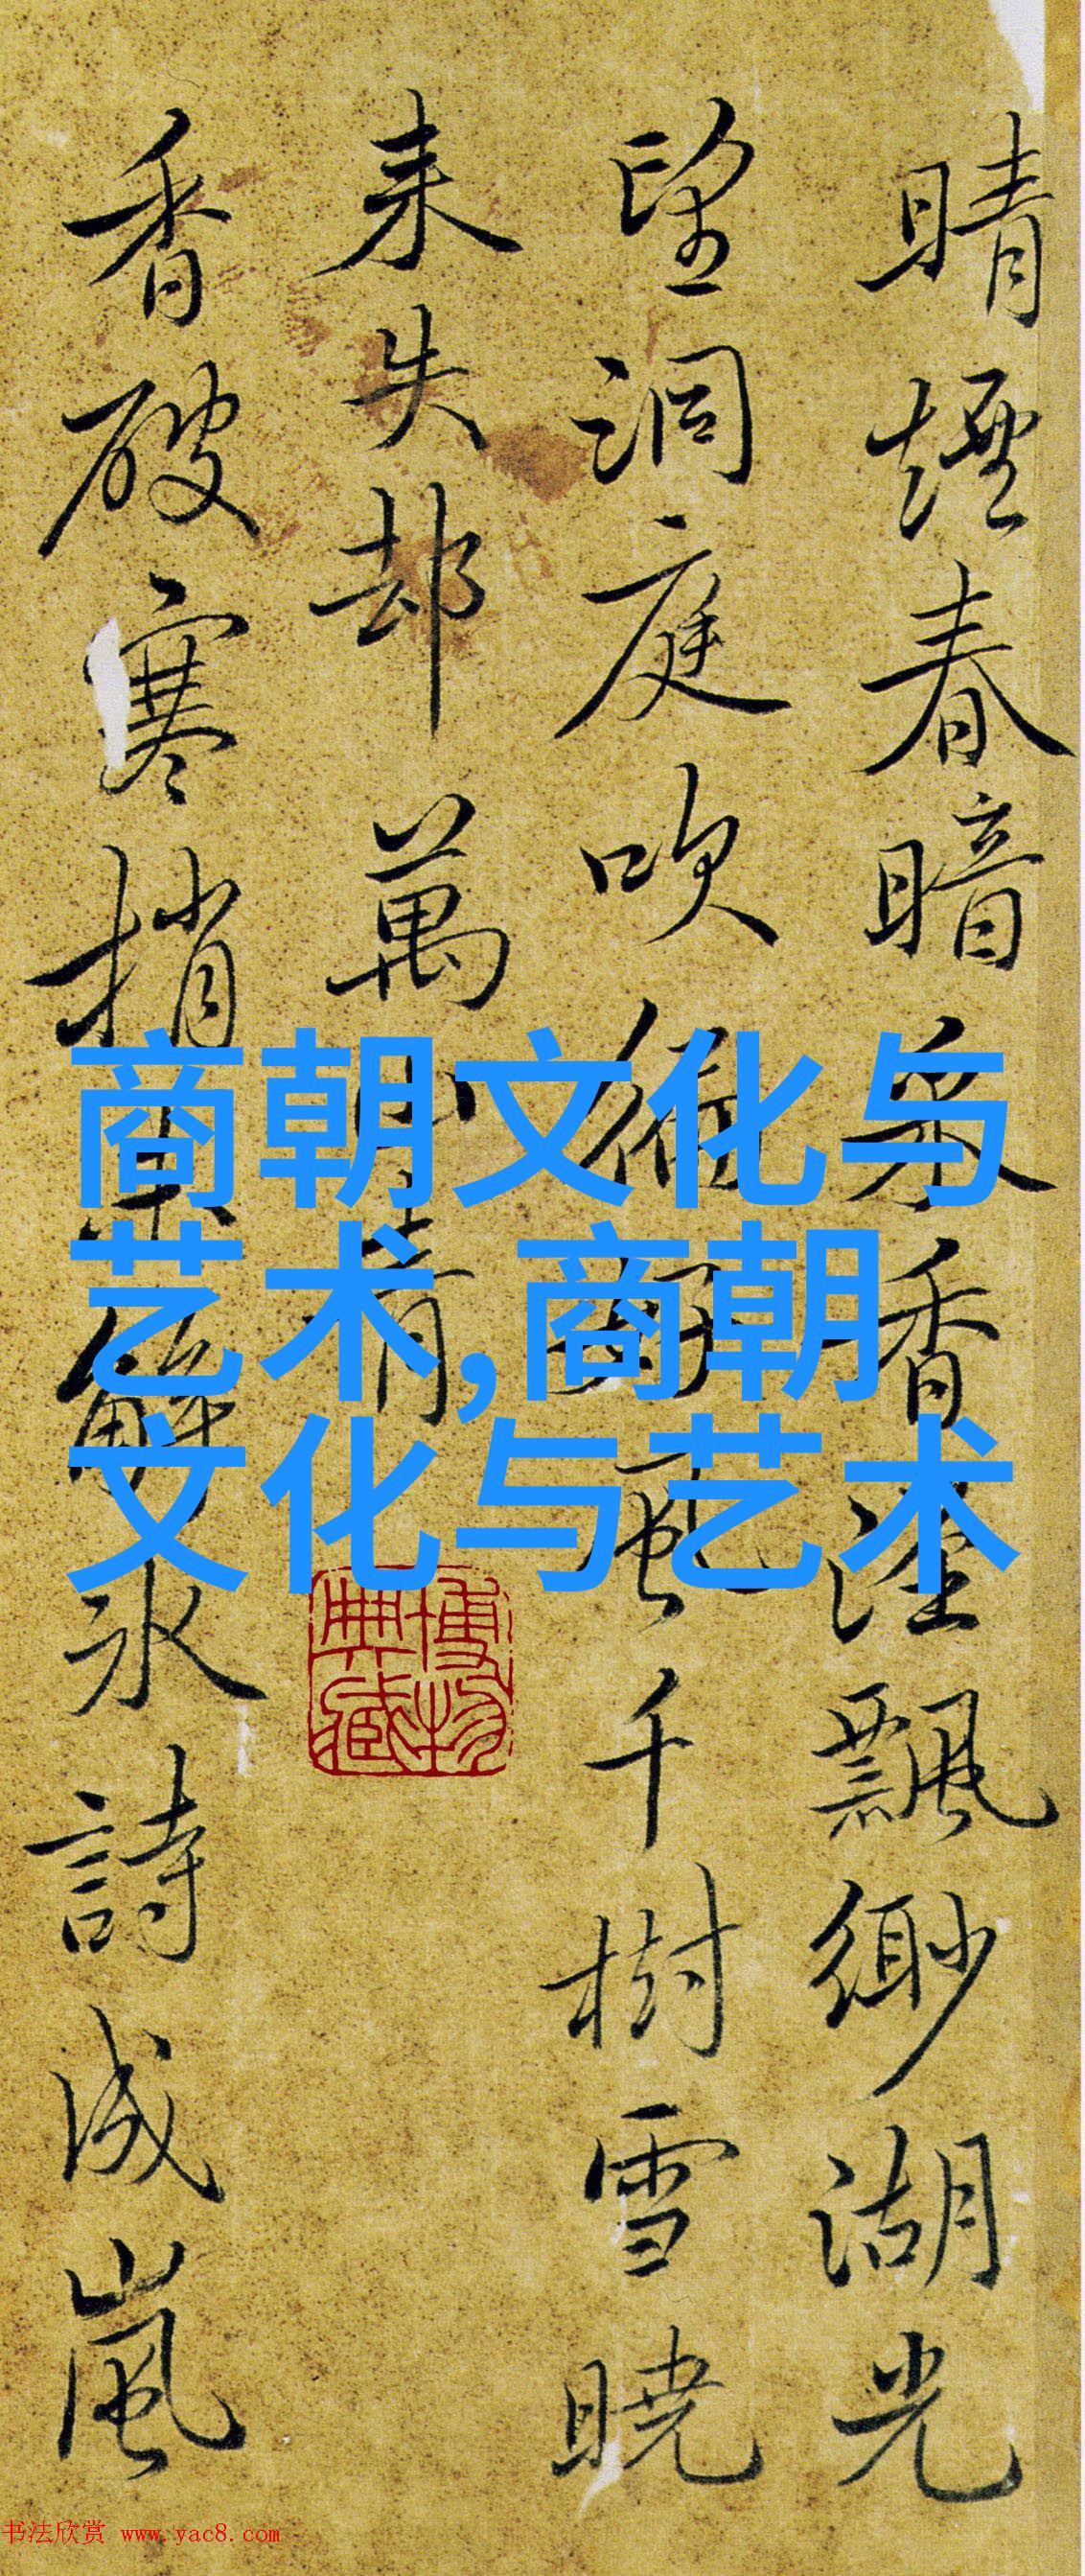 晴煙春暗香溼飄緲湖光
望洞庭吹風千樹雪曉
来失却萬青
香破寒梢冰詩成嵐
商朝文化与
艺术,商朝
文化与艺术
博物
典藏
书法欣赏 www.yac8.com